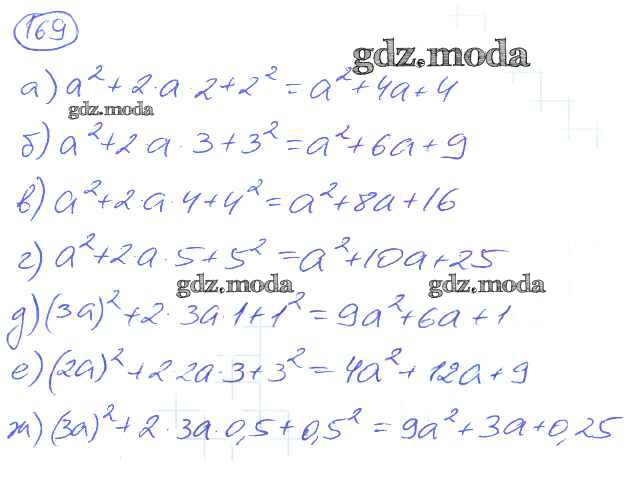 169
gdz.moda
а) a² + 2·a·2 + 2² = a² + 4a + 4
gdz.moda
б) a² + 2·a·3 + 3² = a² + 6a + 9
в) a² + 2·a·4 + 4² = a² + 8a + 16
г) a² + 2·a·5 + 5² = a² + 10a + 25
gdz.moda gdz.moda
д) (3a)² + 2·3a·1 + 1² = 9a² + 6a + 1
е) (2a)² + 2 2a·3 + 3² = 4a² + 12a + 9
ж) (3a)² + 2·3a·0,5 + 0,5² = 9a² + 3a + 0,25